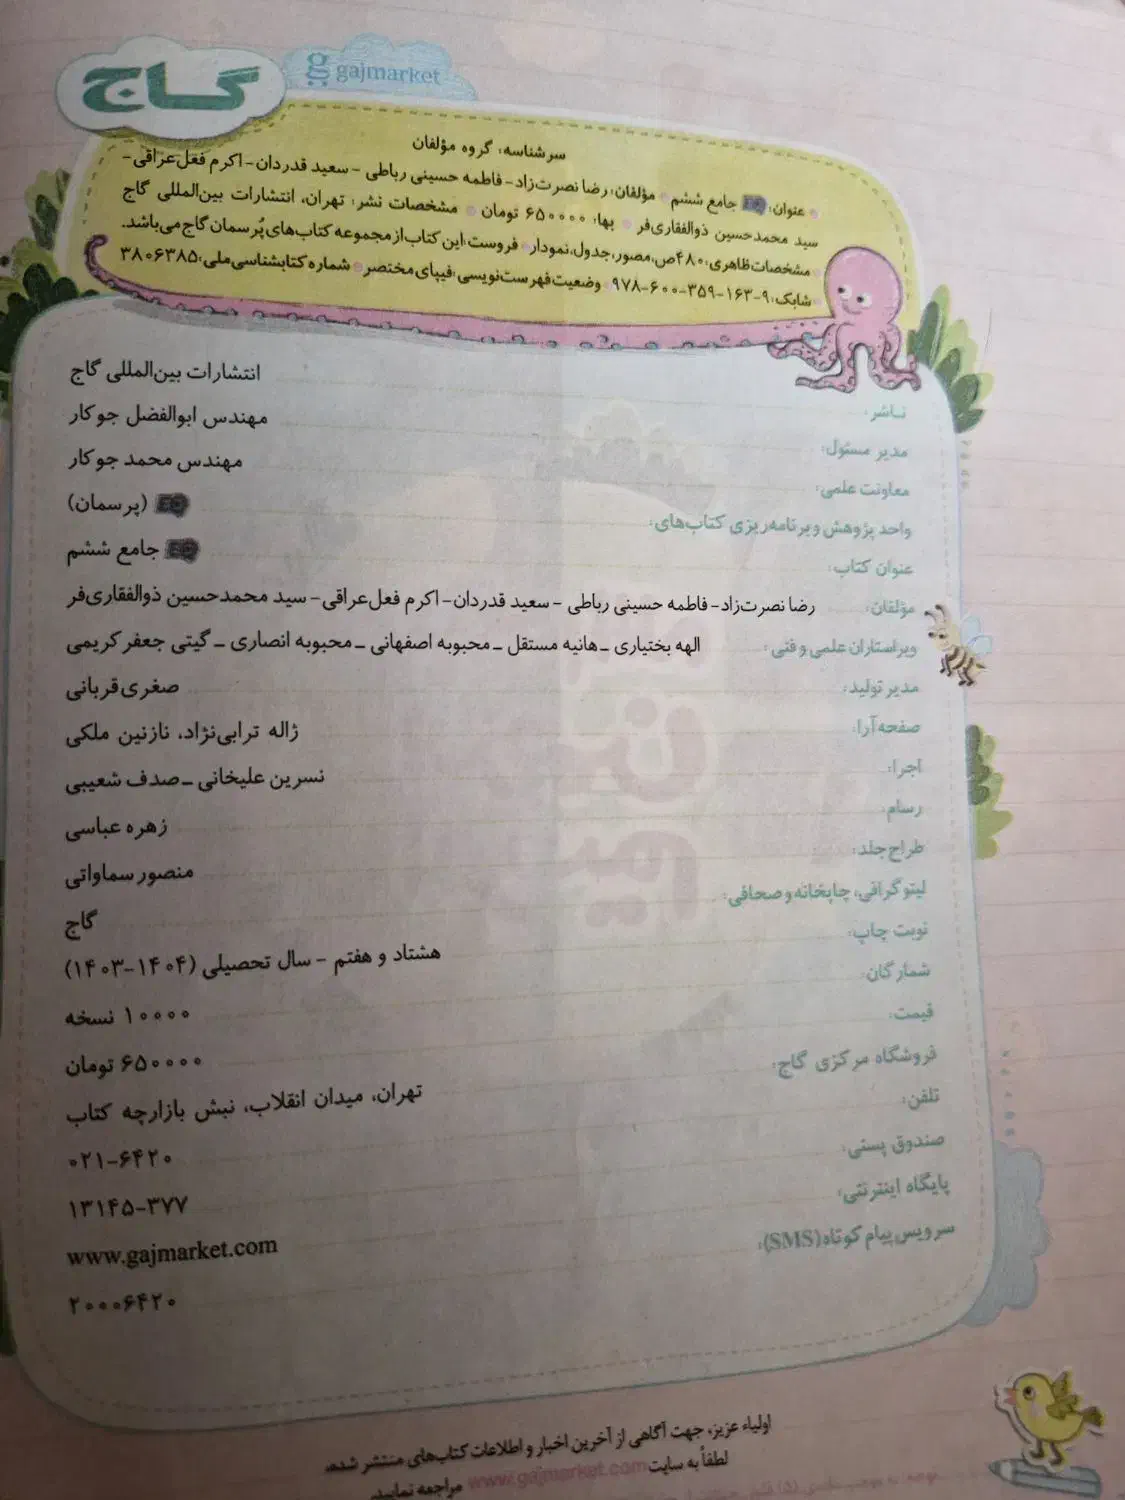 گاج
gajmarket
سرشناسه: گروه مؤلفان
عنوان: EQ جامع ششم مؤلفان: رضا نصرت‌زاد - فاطمه حسینی رباطی - سعید قدردان - اکرم فعل‌عراقی -
سید محمدحسین ذوالفقاری‌فر بها: ۶۵۰۰۰۰ تومان مشخصات نشر: تهران، انتشارات بین‌المللی گاج
مشخصات ظاهری: ۴۸۰ص، مصور، جدول، نمودار فروست: این کتاب از مجموعه کتاب‌های پُرسمان گاج می‌باشد.
شابک: ۹-۱۶۳-۳۵۹-۶۰۰-۹۷۸ وضعیت فهرست‌نویسی: فیپای مختصر شماره کتابشناسی ملی: ۳۸۰۶۳۸۵
ناشر: انتشارات بین‌المللی گاج
مدیر مسئول: مهندس ابوالفضل جوکار
معاونت علمی: مهندس محمد جوکار
واحد پژوهش و برنامه‌ریزی کتاب‌های: EQ (پرسمان)
عنوان کتاب: EQ جامع ششم
مؤلفان: رضا نصرت‌زاد - فاطمه حسینی رباطی - سعید قدردان - اکرم فعل‌عراقی - سید محمدحسین ذوالفقاری‌فر
ویراستاران علمی و فنی: الهه بختیاری - هانیه مستقل - محبوبه اصفهانی - محبوبه انصاری - گیتی جعفر کریمی
مدیر تولید: صغری قربانی
صفحه‌آرا: ژاله ترابی‌نژاد، نازنین ملکی
اجرا: نسرین علیخانی - صدف شعیبی
رسام: زهره عباسی
طراح جلد: منصور سماواتی
لیتوگرافی، چاپخانه و صحافی: گاج
نوبت چاپ: هشتاد و هفتم - سال تحصیلی (۱۴۰۴-۱۴۰۳)
شمارگان: ۱۰۰۰۰ نسخه
قیمت: ۶۵۰۰۰۰ تومان
فروشگاه مرکزی گاج: تهران، میدان انقلاب، نبش بازارچه کتاب
تلفن: ۰۲۱-۶۴۲۰
صندوق پستی: ۱۳۱۴۵-۳۷۷
پایگاه اینترنتی: www.gajmarket.com
سرویس پیام کوتاه (SMS): ۲۰۰۰۶۴۲۰
اولیاء عزیز، جهت آگاهی از آخرین اخبار و اطلاعات کتاب‌های منتشر شده،
لطفاً به سایت www.gajmarket.com مراجعه نمایید.